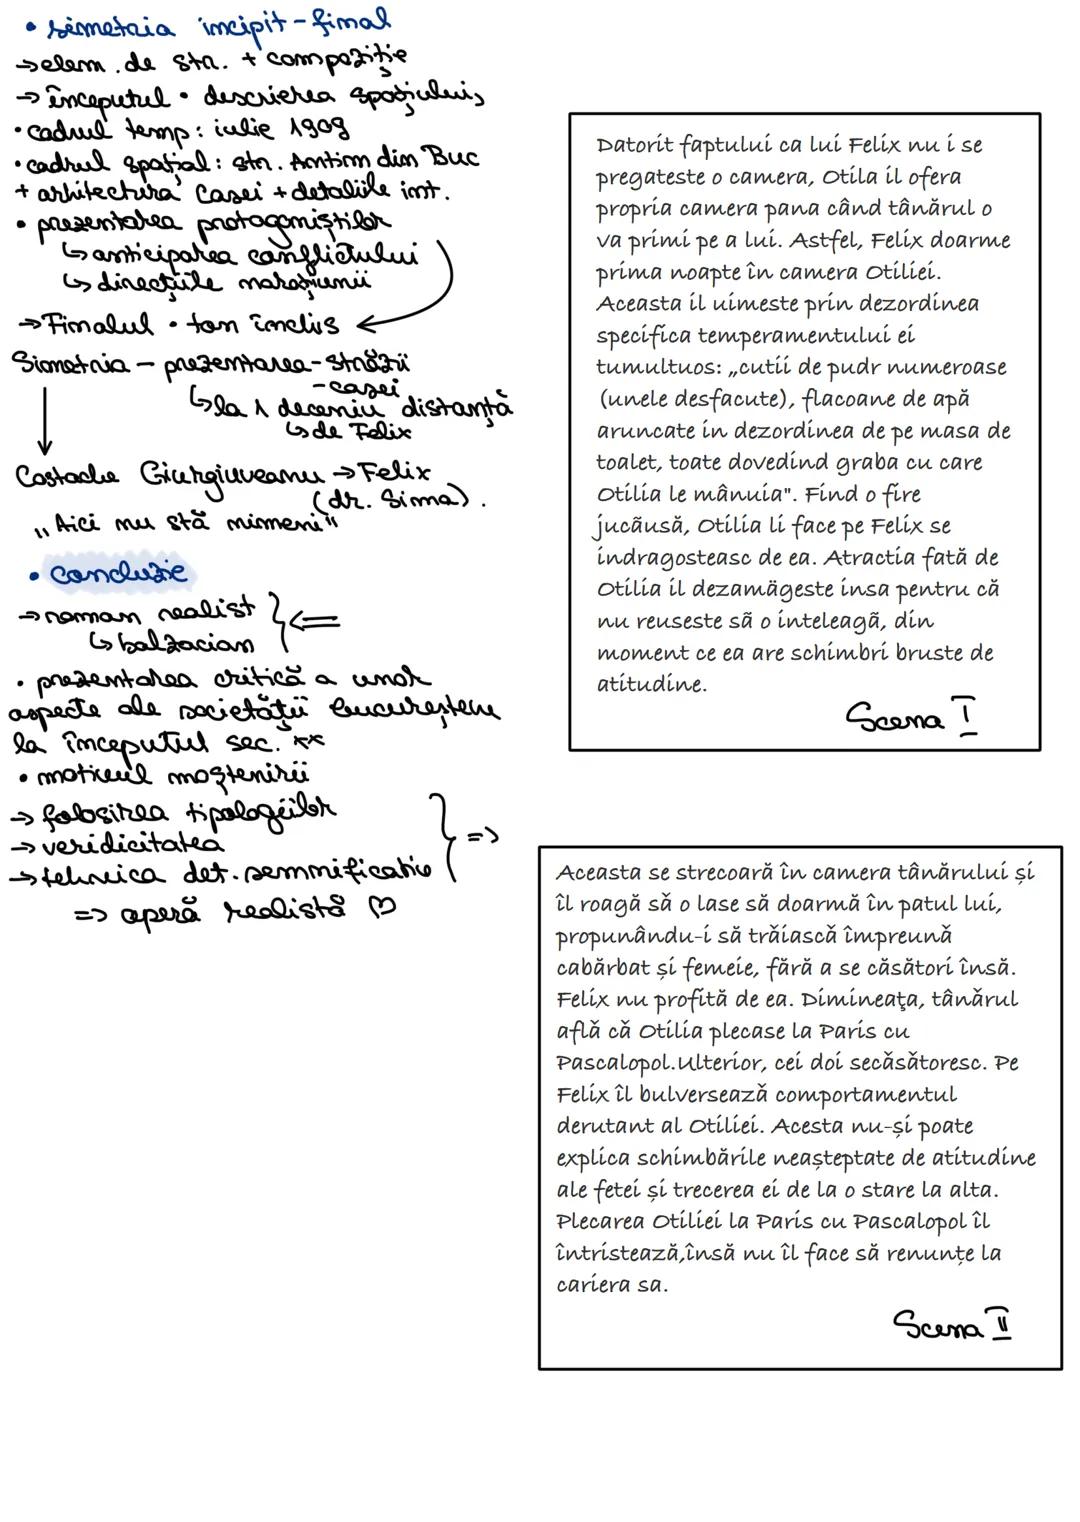 • simetria incipit - final
→ elem. de str. + compoziție
→ începutul • descrierea spațiului,
• cadrul temp: iulie 1909
• cadrul spațial: str. Antim din Buc
+ arhitectura casei + detaliile int.
• prezentarea protagoniștilor
↳ anticiparea conflictului
↳ direcțiile narațiunii
→ Finalul • ton închis
Simetria - prezentarea - străzii
- casei
↳ la 1 deceniu distanță
↳ de Felix
Costache Giurgiuveanu → Felix
(dr. Sima).
„Aici nu stă nimeni"
• concluzie
→ roman realist
↳ balzacian
• prezentarea critică a unor
aspecte ale societății bucureștene
la începutul sec. xx
• motivul moștenirii
→ folosirea tipologiilor
→ veridicitatea
→ tehnica det. semnificativ
=>
=> operă realistă ♡
Datorit faptului ca lui Felix nu i se
pregateste o camera, Otila il ofera
propria camera pana când tânărul o
va primi pe a lui. Astfel, Felix doarme
prima noapte în camera Otiliei.
Aceasta il uimeste prin dezordinea
specifica temperamentului ei
tumultuos: „cutii de pudr numeroase
(unele desfacute), flacoane de apă
aruncate in dezordinea de pe masa de
toalet, toate dovedind graba cu care
Otilia le mânuia". Find o fire
jucãusă, Otilia li face pe Felix se
indragosteasc de ea. Atractia fată de
Otilia il dezamägeste insa pentru că
nu reuseste sã o inteleagã, din
moment ce ea are schimbri bruste de
atitudine.
Scena I
Aceasta se strecoară în camera tânărului și
îl roagă să o lase să doarmă în patul lui,
propunându-i să trăiască împreună
cabărbat și femeie, fără a se căsători însă.
Felix nu profită de ea. Dimineaţa, tânărul
află că Otilia plecase la Paris cu
Pascalopol.Ulterior, cei doi secăsătoresc. Pe
Felix îl bulversează comportamentul
derutant al Otiliei. Acesta nu-și poate
explica schimbările neașteptate de atitudine
ale fetei și trecerea ei de la o stare la alta.
Plecarea Otiliei la Paris cu Pascalopol îl
întristează,însă nu îl face să renunțe la
cariera sa.
Scena II